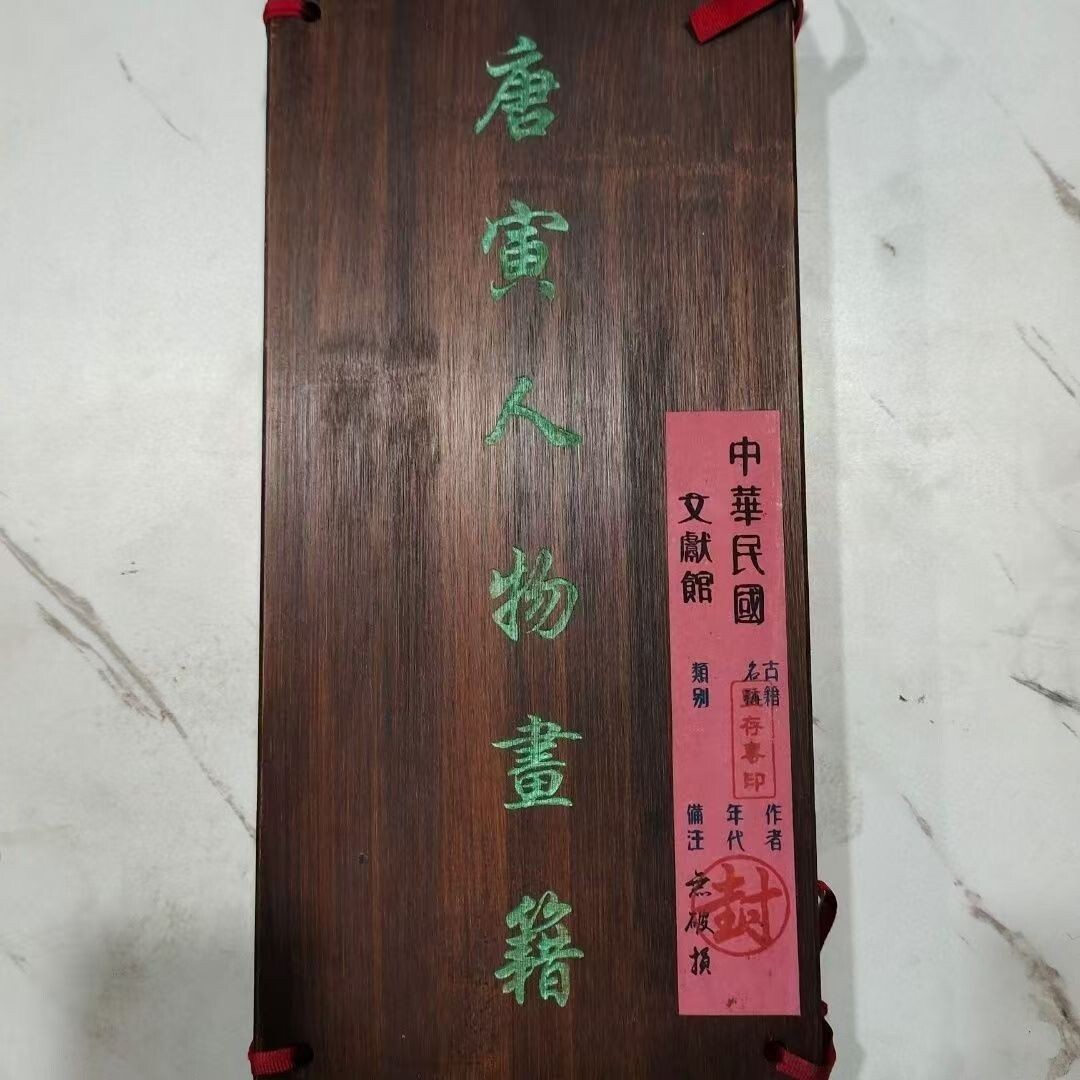 唐寅人物畫籍
中華民國
文獻館
古籍
名稱
類别
存書印
作者
年代
備注
無破損
封